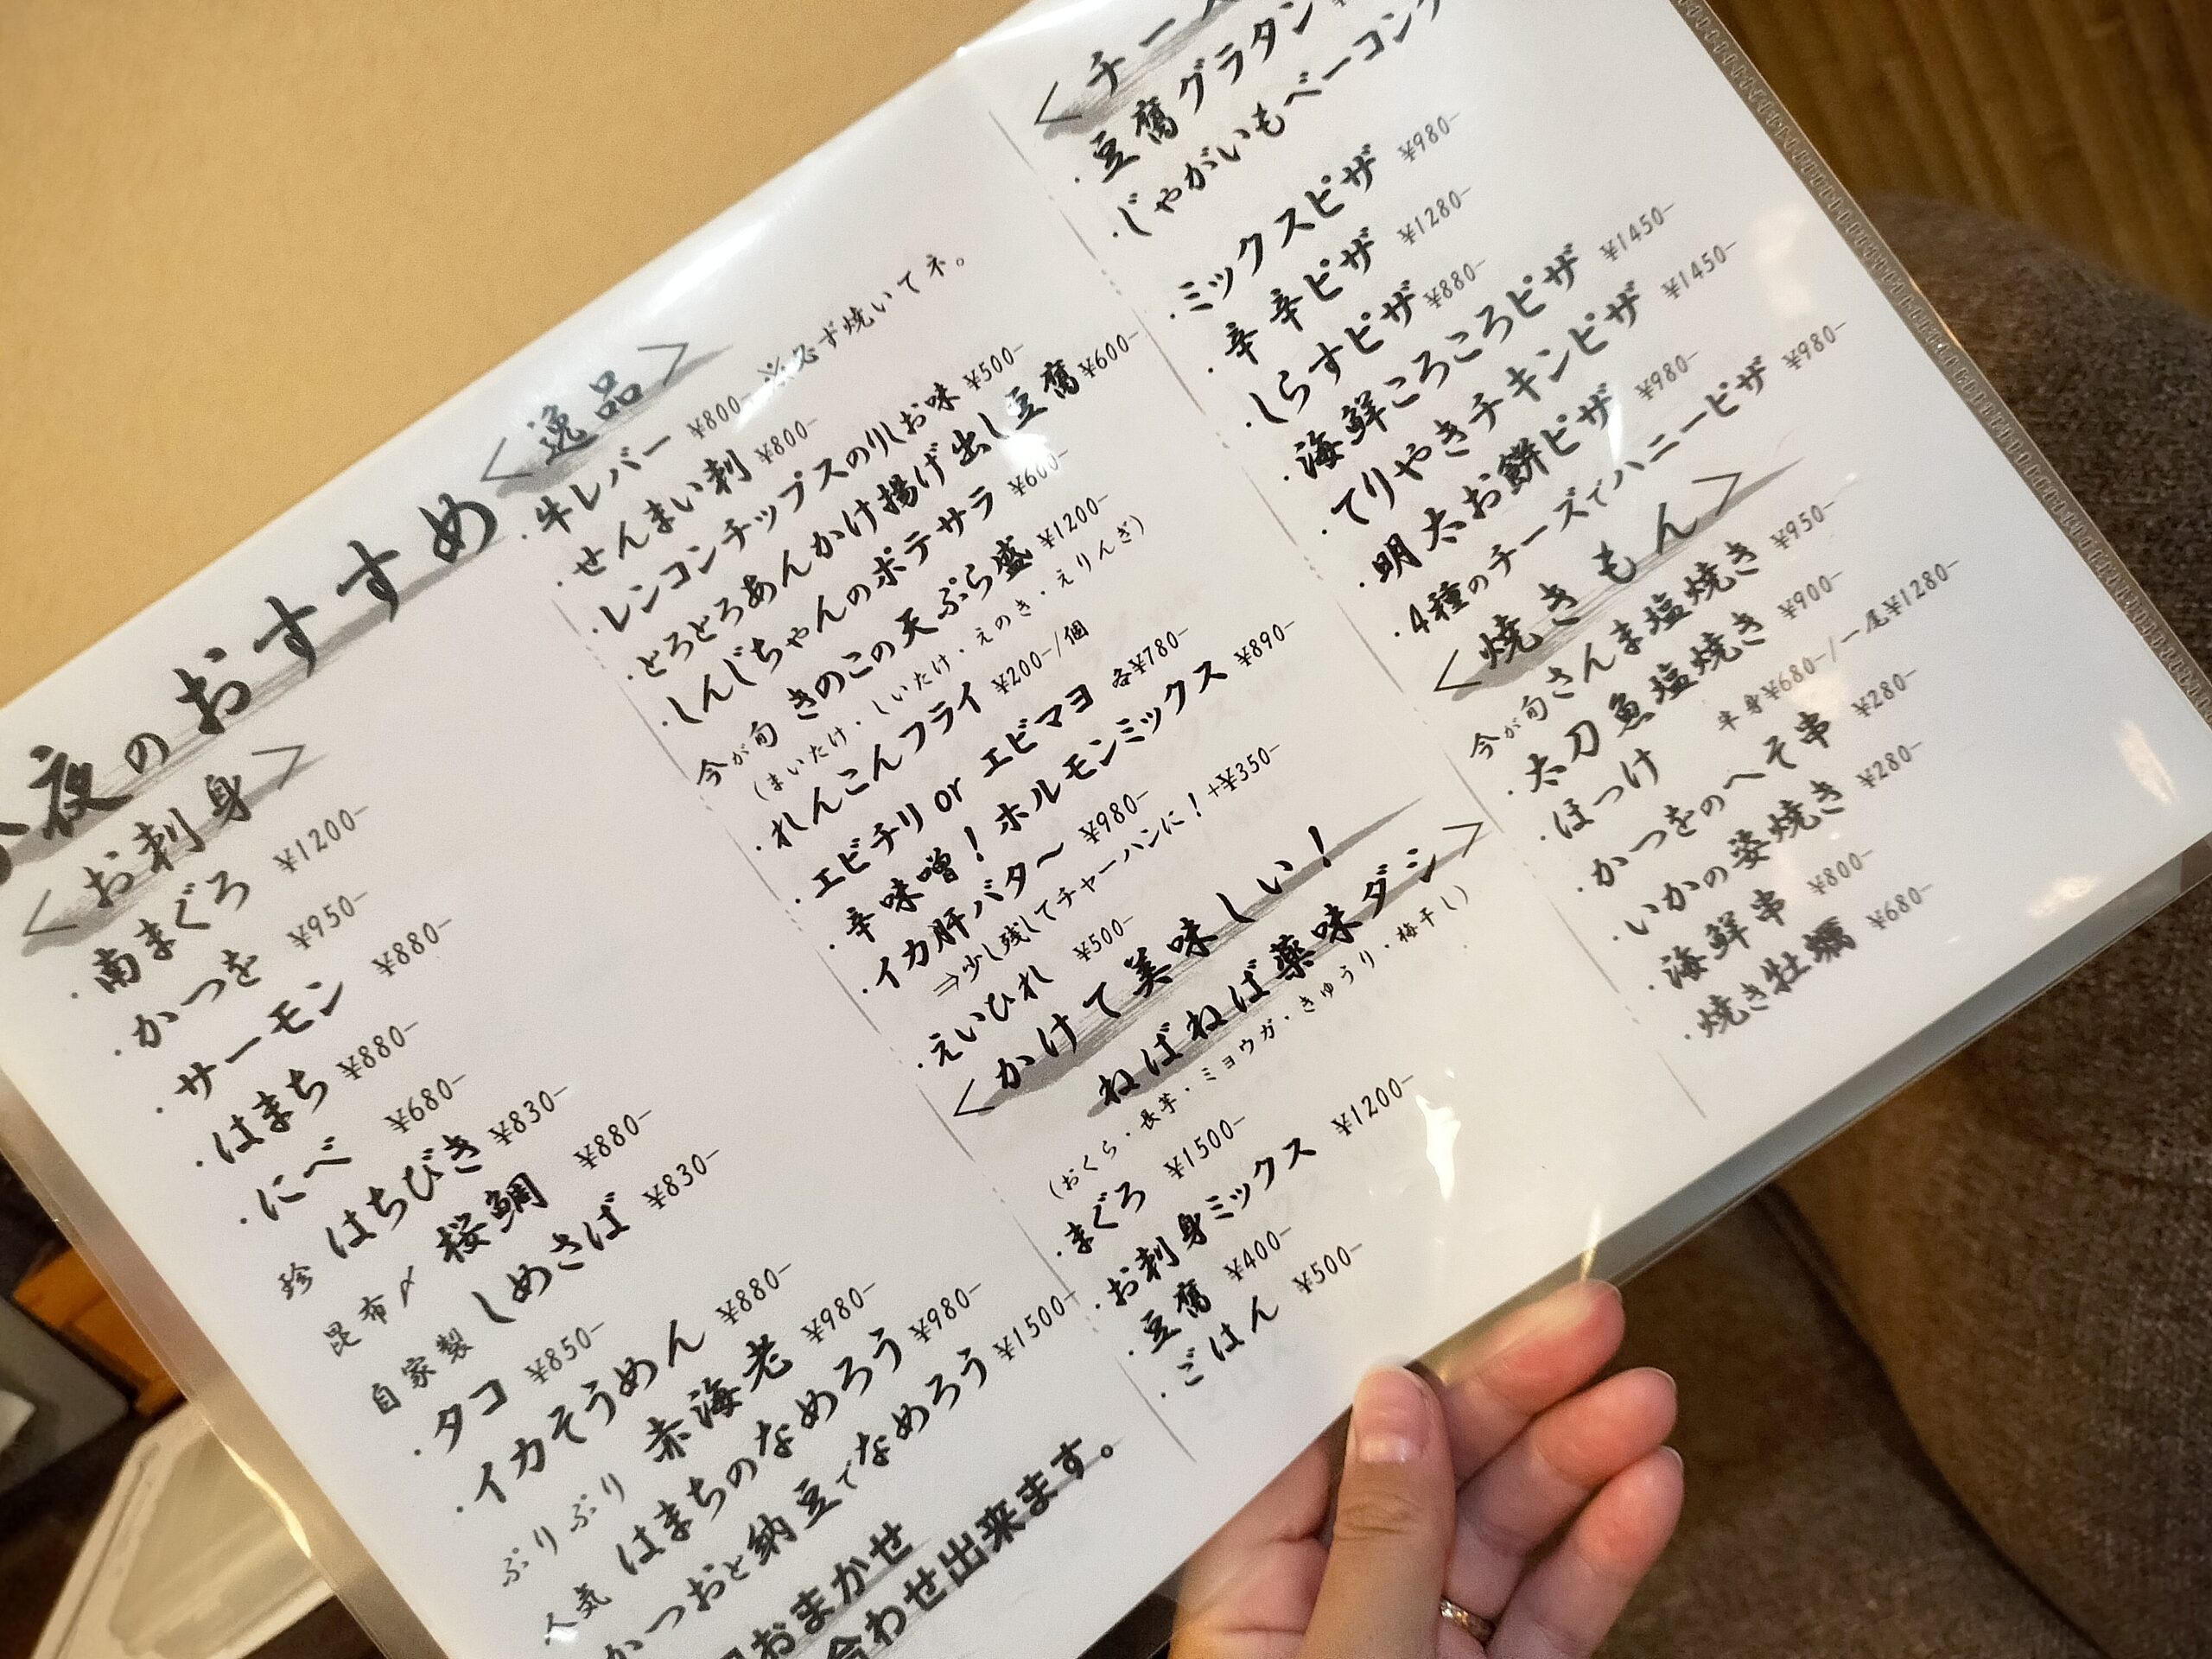 夜のおすすめ
<お刺身>
・南まぐろ ¥1200-
・かつを ¥950-
・サーモン ¥880-
・はまち ¥880-
・にべ ¥680-
珍 はちびき ¥830-
昆布〆 桜鯛 ¥880-
自家製 しめさば ¥830-
・タコ ¥850-
・イカそうめん ¥880-
ぷりぷり 赤海老 ¥980-
人気 はまちのなめろう ¥980-
かつおと納豆でなめろう ¥1500-
おまかせ
合わせ出来ます。
<逸品>
・牛レバー ¥800- ※必ず焼いてネ。
・せんまい刺 ¥800-
・レンコンチップスのりしお味 ¥500-
・とろとろあんかけ揚げ出し豆腐 ¥600-
・しんじちゃんのポテサラ ¥600-
今が旬 きのこの天ぷら盛 ¥1200-
(まいたけ・しいたけ・えのき・えりんぎ)
・れんこんフライ ¥200-/個
・エビチリ or エビマヨ 各¥780-
・辛味噌!ホルモンミックス ¥890-
・イカ肝バタ〜 ¥980-
⇒少し残してチャーハンに!+¥350-
・えいひれ ¥500-
<かけて美味しい!
ねばねば薬味ダシ>
(おくら・長芋・ミョウガ・きゅうり・梅干し)
・まぐろ ¥1500-
・お刺身ミックス ¥1200-
・豆腐 ¥400-
・ごはん ¥500-
<チー
・豆腐グラタン
・じゃがいもベーコン
・ミックスピザ ¥980-
・辛辛ピザ ¥1280-
・しらすピザ ¥880-
・海鮮ころころピザ ¥1450-
・てりやきチキンピザ ¥1450-
・明太お餅ピザ ¥980-
・4種のチーズでハニーピザ ¥980-
<焼きもん>
今が旬さんま塩焼き ¥950-
・太刀魚塩焼き ¥900-
・ほっけ 半身¥680-/一尾¥1280-
・かつをのへそ串 ¥280-
・いかの姿焼き ¥280-
・海鮮串 ¥800-
・焼き牡蠣 ¥680-